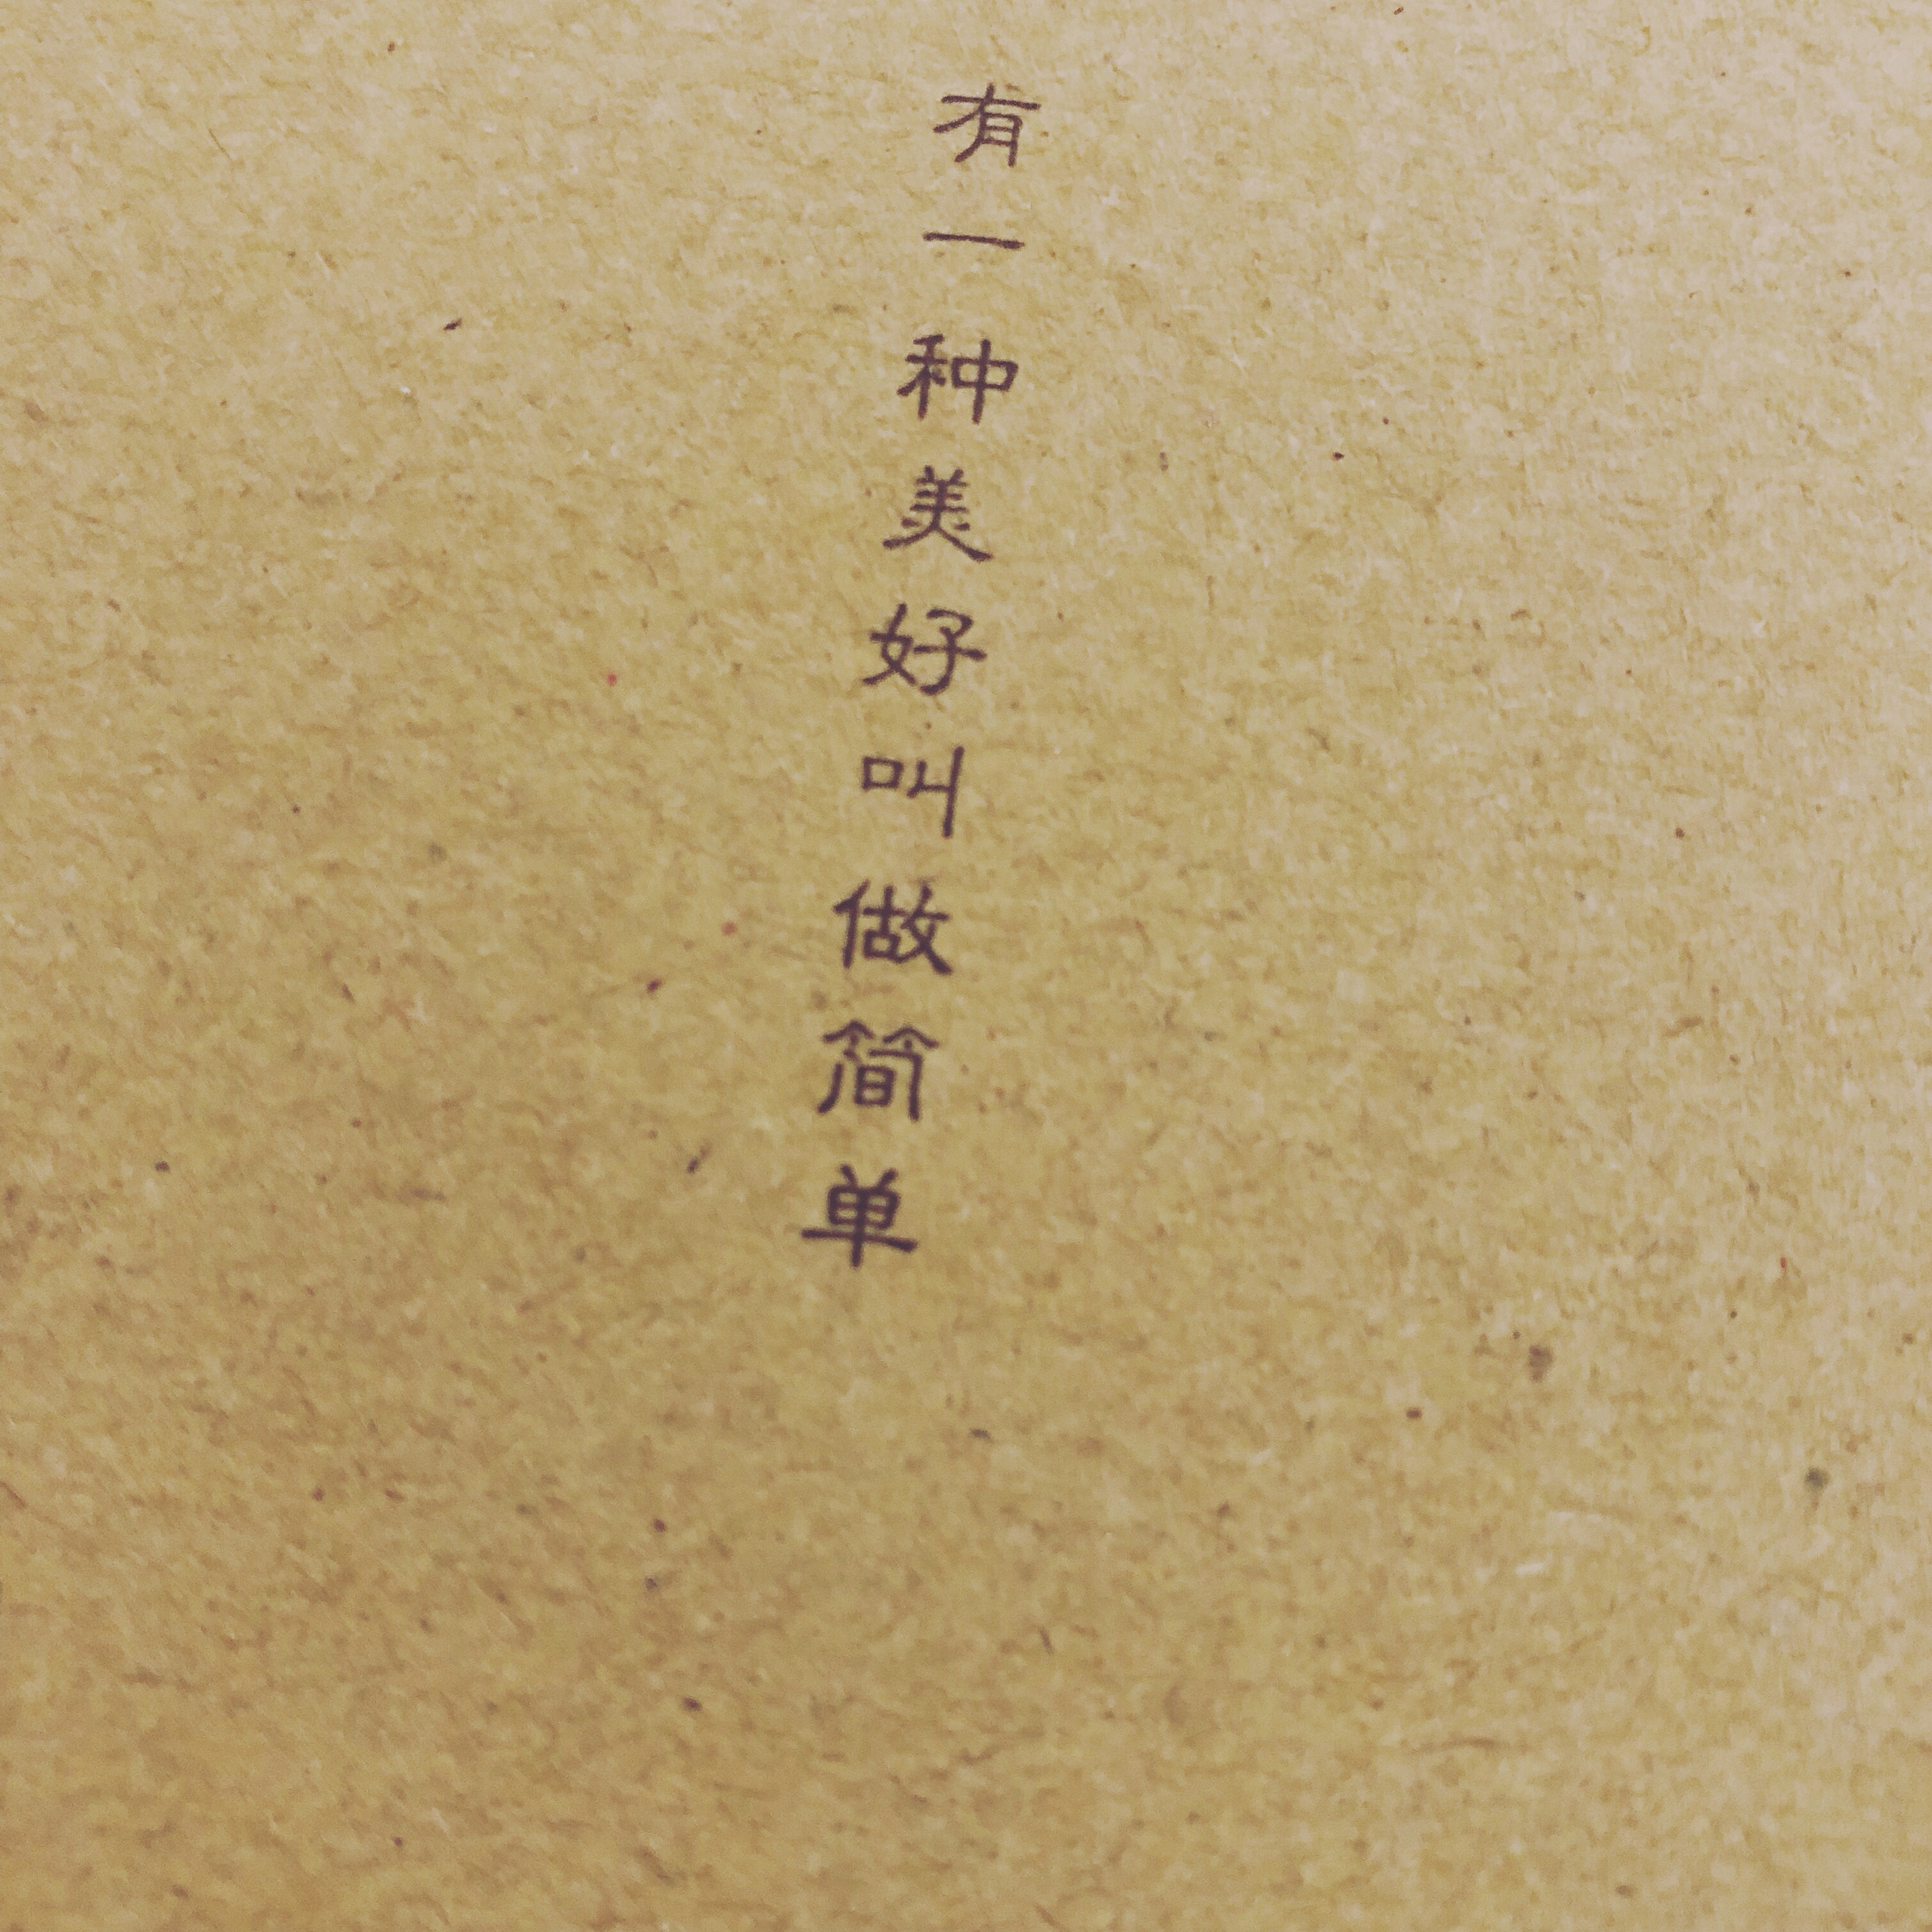 有一种美好叫做简单